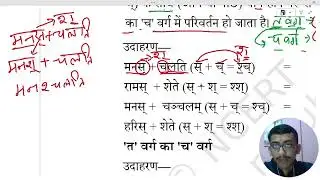 का 'च' वर्ग में परिवर्तन हो जाता है।
उदाहरण—
मनस् + चलति (स् + च् = श्च्)
रामस् + शेते (स् + श् = श्श)
मनस् + चञ्चलम् (स् + च् = श्च)
हरिस् + शेते (स् + श् = श्श)
'त' वर्ग का 'च' वर्ग
उदाहरण—
मनस् + चलति
मनश् + चलति
मनश्चलति
श्
श्